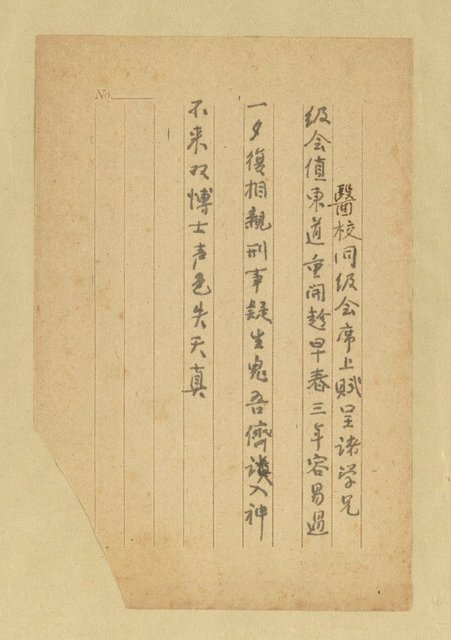 醫校同级会席上賦呈诸学兄
级会值東道重開趁早春三年容易過
一夕復相親刑事疑生鬼吾儕談入神
不来双博士声色失天真
No.